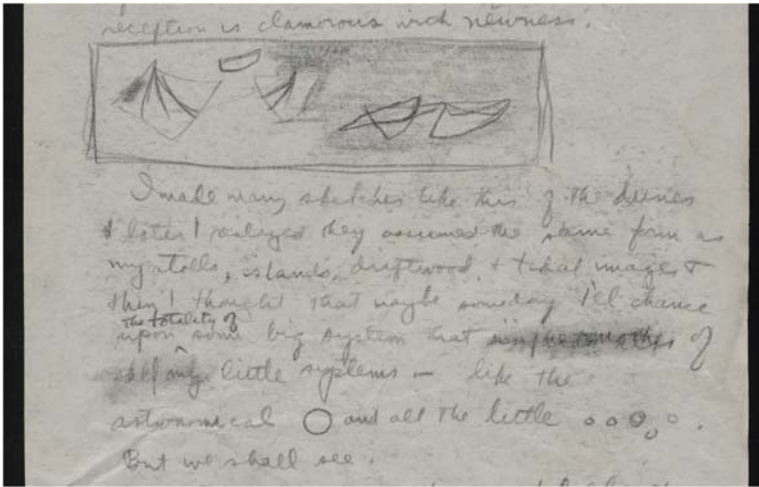 reception is clamorous with newness.
I made many sketches like this of the dunes
& later I realized they assumed the same form as
my atolls, islands, driftwood, & tidal images &
then I thought that maybe someday I'll chance
the totality of
upon some big system that of
my little systems — like the
astronomical and all the little
But we shall see.